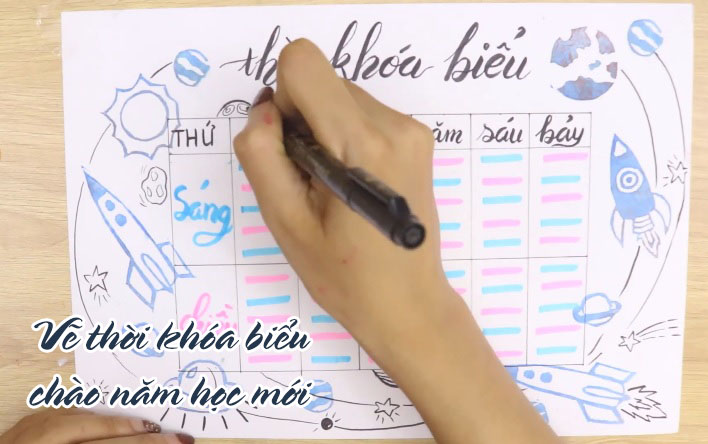 khóa biểu
THỨ sáu bảy
Sáng
Vẽ thời khóa biểu
chào năm học mới